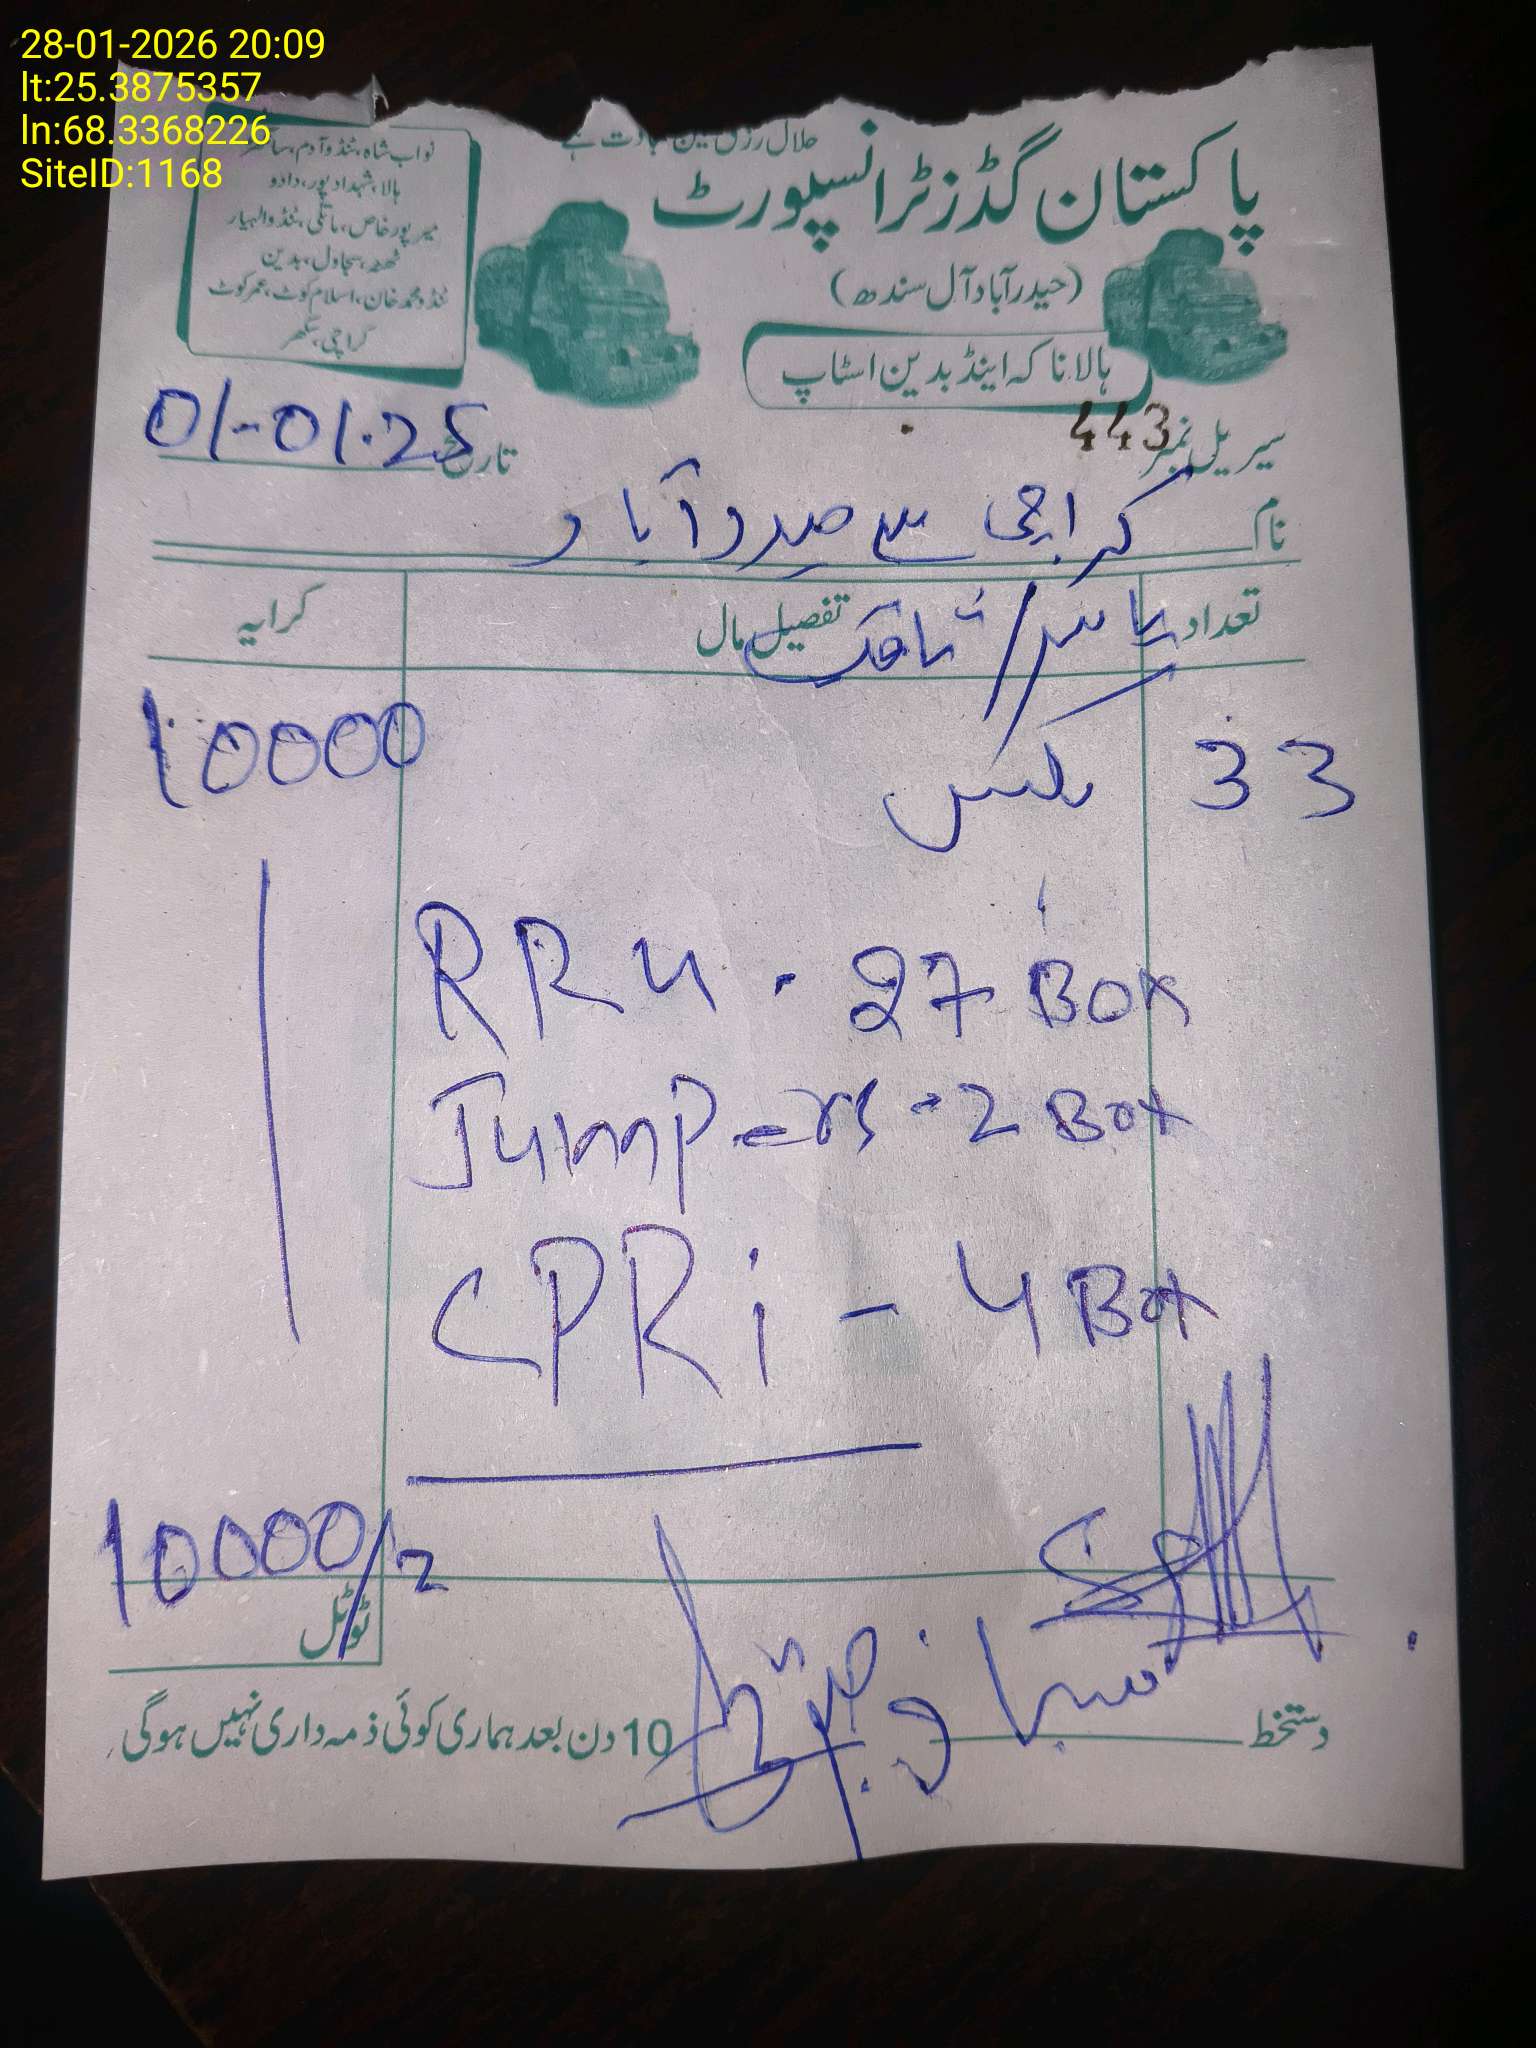 28-01-2026 20:09
lt:25.3875357
ln:68.3368226
SiteID:1168
حلال رزق عین عبادت ہے
پاکستان گڈز ٹرانسپورٹ
(حیدرآباد آل سندھ)
ہالا ناکہ اینڈ بدین اسٹاپ
نواب شاہ، ٹنڈو آدم، سانگھڑ
ہالا، شہدادپور، دادو
میرپورخاص، ماتلی، ٹنڈوالہیار
ٹھٹھہ، سجاول، بدین
ٹنڈو محمد خان، اسلام کوٹ، عمرکوٹ
کراچی، سکھر
سیریل نمبر 443
تاریخ 01-01-25
نام کراچی سے حیدرآباد
تعداد تفصیل مال کرایہ
33 بکس 10000
RRU - 27 Box
Jumpers - 2 Box
CPRi - 4 Box
10000/2
ٹوٹل
دستخط
10 دن بعد ہماری کوئی ذمہ داری نہیں ہوگی